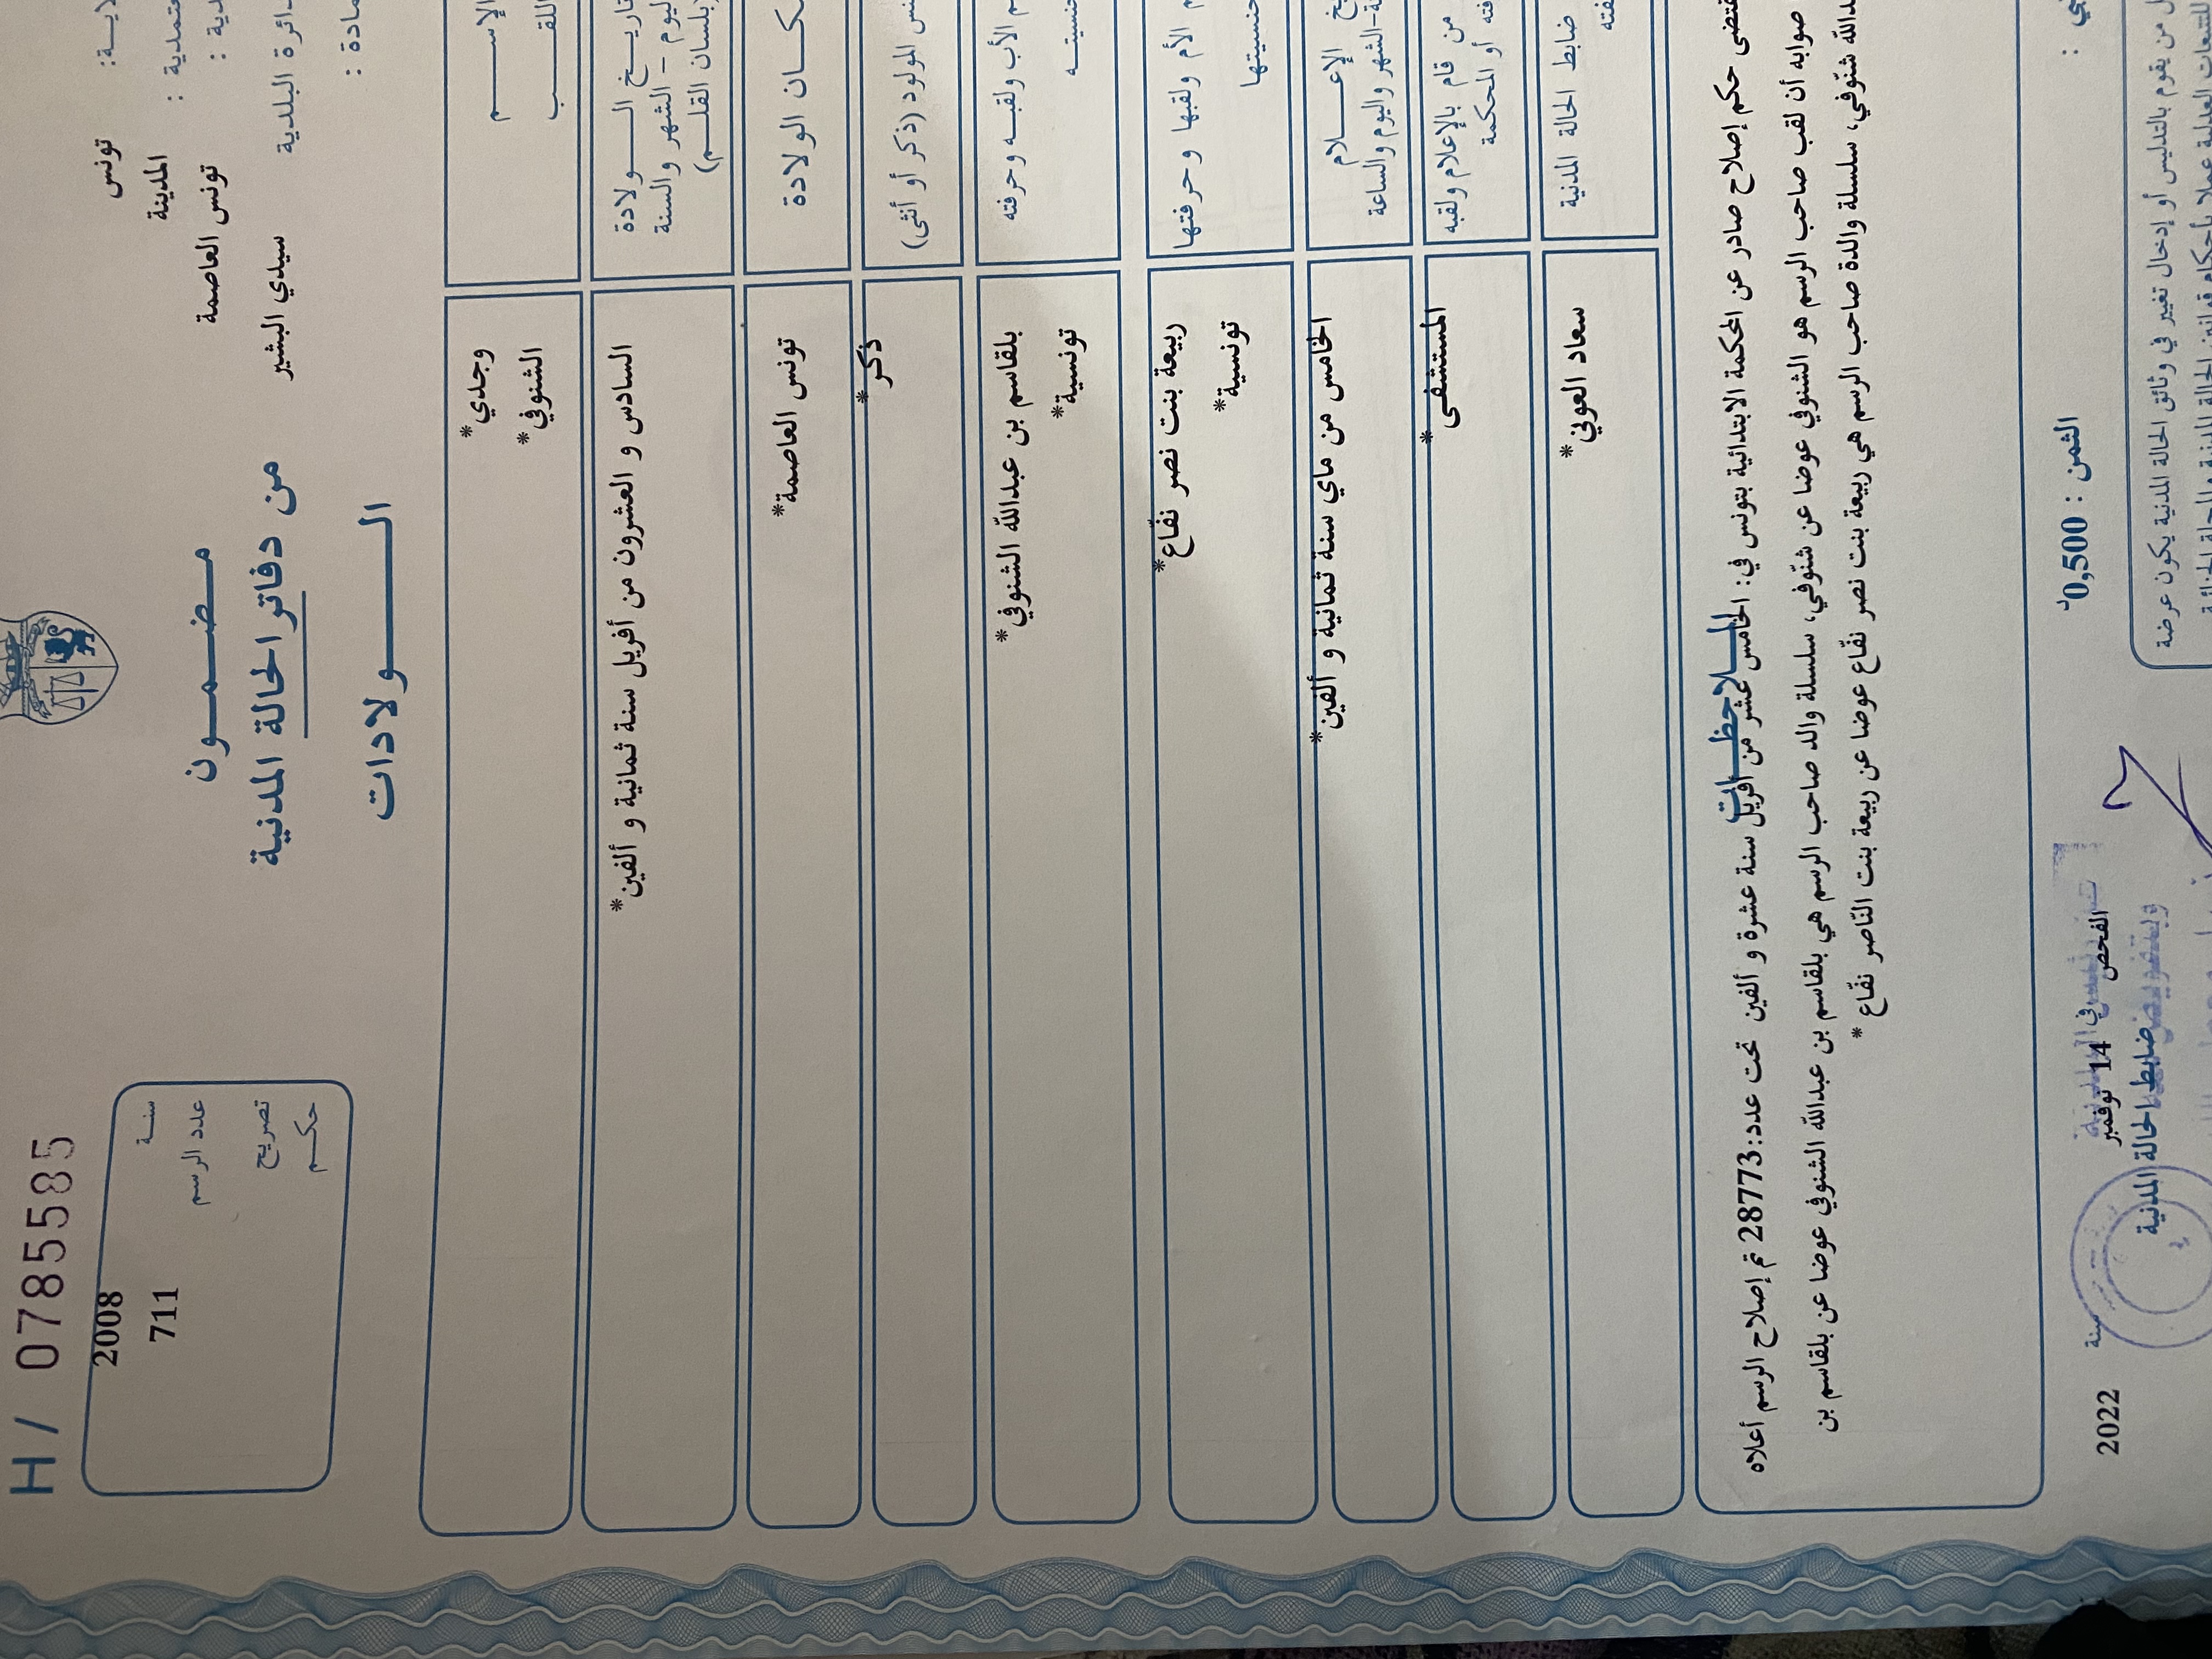 H / 0785585
2008
سنة
711
عدد الرسم
تصريح
حكم
تونس
المدينة
تونس العاصمة
سيدي البشير
دائرة البلدية
مضمون
من دفاتر الحالة المدنية
الولادات
وجدي*
الشنوفي*
السادس و العشرون من أفريل سنة ثمانية و ألفين*
الولادة
اليوم - الشهر والسنة
(بلسان القلم)
تونس العاصمة*
مكان الولادة
ذكر*
المولود (ذكر أو أنثى)
بلقاسم بن عبدالله الشنوفي*
الأب ولقبه وحرفته
تونسية*
ربيعة بنت نصر نفّاع*
الأم ولقبها وحرفتها
تونسية*
جنسيتها
الخامس من ماي سنة ثمانية و ألفين*
الإعلام
الشهر واليوم والساعة
المستشفى*
من قام بالإعلام ولقبه
أو المحكمة
سعاد العوني*
ضابط الحالة المدنية
الملاحظات
حكم إصلاح صادر عن المحكمة الابتدائية بتونس في: الخامس عشر من أفريل سنة عشرة و ألفين تحت عدد:28773 تم إصلاح الرسم أعلاه
صوابه أن لقب صاحب الرسم هو الشنوفي عوضا عن شنّوفي، سلسلة والد صاحب الرسم هي بلقاسم بن عبدالله الشنوفي عوضا عن بلقاسم بن
شنّوفي، سلسلة والدة صاحب الرسم هي ربيعة بنت نصر نفّاع عوضا عن ربيعة بنت النّاصر نفّاع *
الثمن : 0,500د
الفحص في 14 نوفمبر سنة 2022
ضابط الحالة المدنية
من يقوم بالتدليس أو إدخال تغيير في وثائق الحالة المدنية يكون عرضة